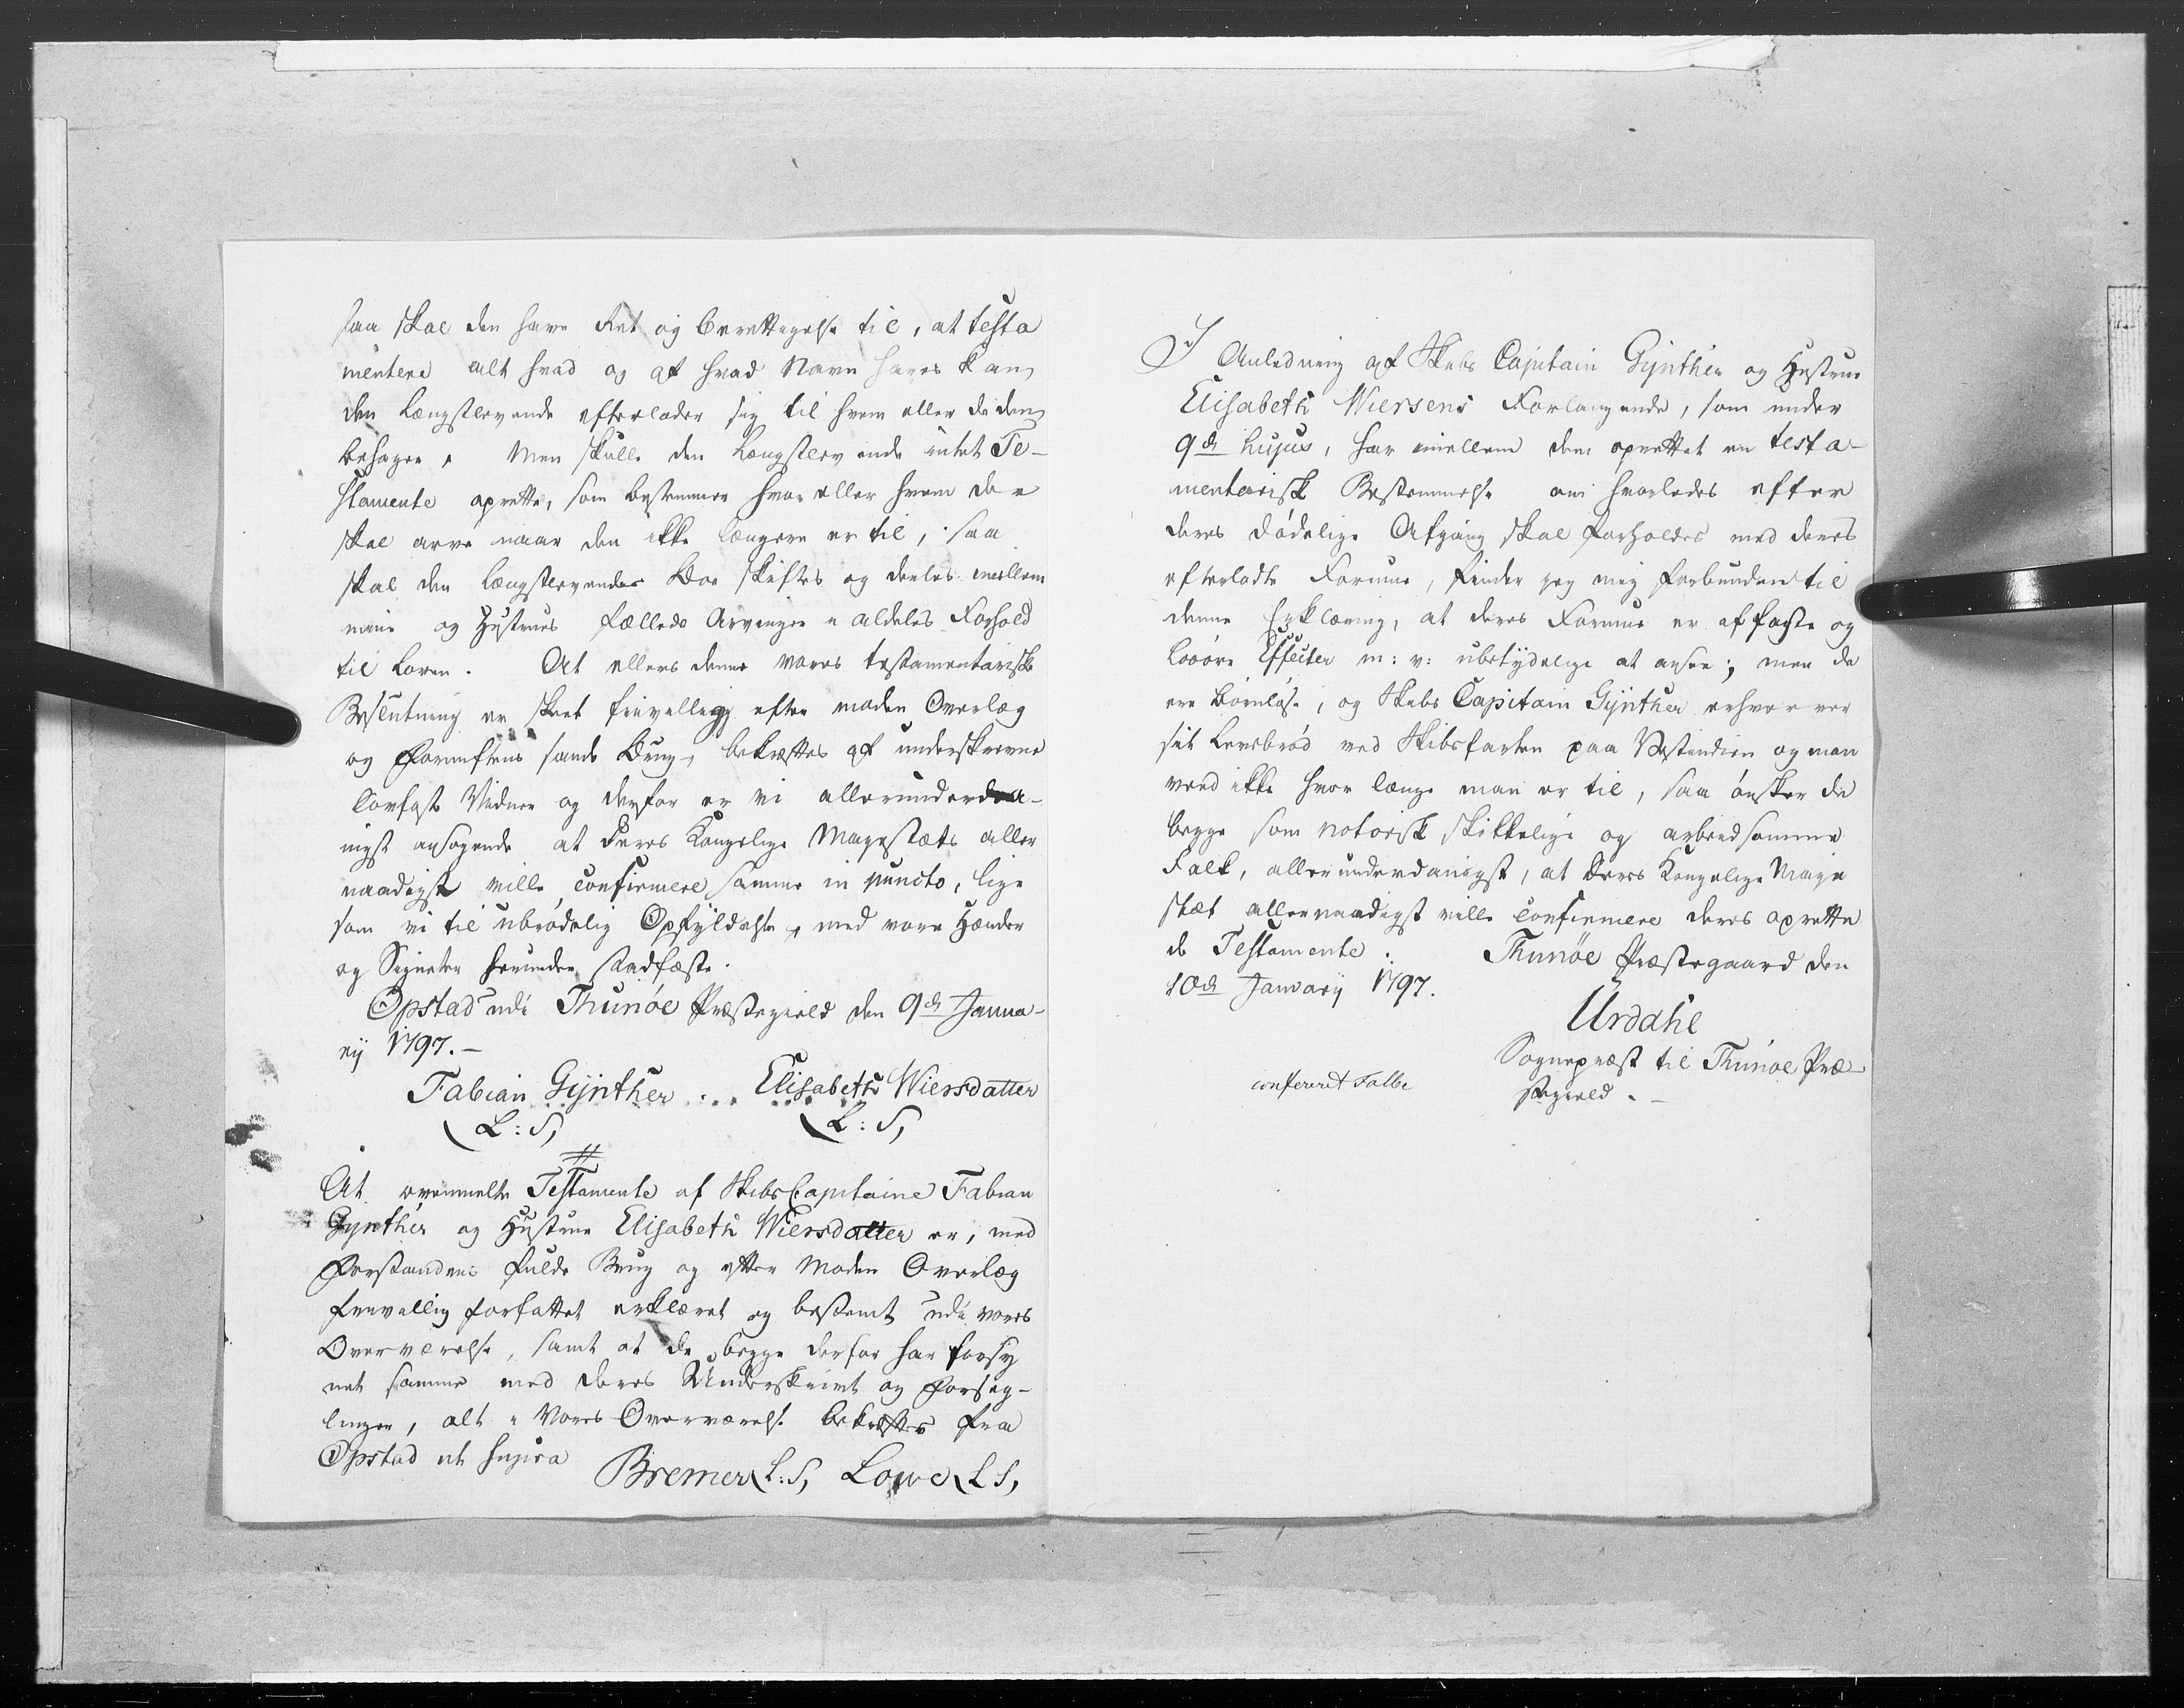 saa skal den have Ret og berettigelse til, at testa
mentere alt hvad og af hvad Navn haves kan,
den Længstlevende efterlader sig til hvem eller de dem
behager. Men skulle den Længstlevende intet Te-
stamente oprette, som bestemmer hvor eller hvem der
skal arve naar den ikke længere er til, saa
skal den længstlevendes Boe skiftes og deeles mellem
min og Hustrues fælleds Arvinger i aldeles Forhold
til Loven. At ellers denne vores testamentariske
Beslutning er skeet frievillig efter moden Overlæg
og Fornuftens sande Brug, bekræftes af underskrevne
Lovfaste Vidner og derfor er vi allerunderda-
nigst ansøgende at Deres Kongelige Mayestæts aller
naadigst ville confirmere samme in puncto, lige
som vi til ubrødelig Opfyldelse, med vore Hænder
og Signeter herunder stadfæste.
Opstad udi Thunøe Præstegield den 9de Janua-
rij 1797.-
Fabian Gÿnther ... Elisabeth Wiersdatter
(L:S) (L:S)
At ovenmelte Testamente af SkibsCapitaine Fabian
Gynther og Hustrue Elisabeth Wiersdatter er, med
Forstandens fulde Brug og efter Moden Overlæg
frievillig forfattet erklæret og bestemt udi vores
Overværelse, samt at de begge derfor har forsy
net samme med deres Underskrivt og Forseg-
linger, alt i Vores Overværelse bekræftes fra
Opstad ut supra Bremer (L:S) Lowe (LS)
I Anledning af Skibs Capitain Gÿnther og Hustrue
Elisabeth Wiersens Forlangende, som under
9de hujus, har imellem dem oprettet en testa-
mentarisk Bestemmelse om hvorledes efter
deres dødelige Afgang skal forholdes med deres
efterladte Formue, finder jeg mig forbunden til
denne Erklæring, at deres Formue er af faste og
Løsøre Effecter m: v: ubetydelige at ansee; men da
ere børnløse, og Skibs Capitain Gÿnther erhverver
sit Levebrød ved Skibsfarten paa Vestindien og man
veed ikke hvor længe man er til, saa ønsker de
begge som notorisk skikkelige og arbeidsomme
Folk, allerunderdanigst, at Deres Kongelige Maye
stæt allernaadigst ville confirmere deres oprette
de Testamente. Thunöe Præstegaard den
10de Januarÿ 1797.
Urdahl
Sognepræst til Thunöe Præ-
stegield.-
confererit Falbe